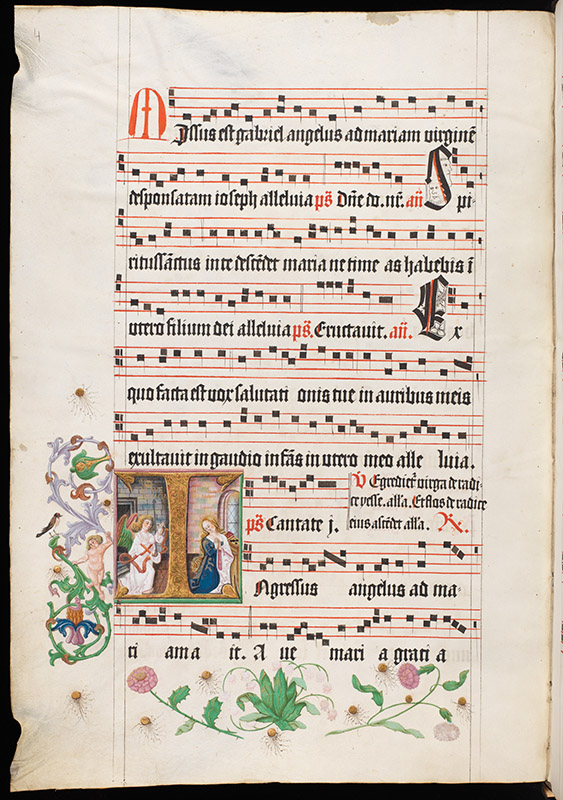 Missus est gabriel angelus ad mariam virginē
desponsatam ioseph alleluia ps̄. Dn̄e do. nr̄. an̄. Spi-
ritussāctus in te descēdet maria ne time as habebis ī
utero filium dei alleluia ps̄. Eructavit. an̄. Ex
quo facta est vox salutati onis tue in auribus meis
exultavit in gaudio infās in utero meo alle luia.
V Egrediet̄ virga de radi-
ce yesse. alla. Et flos de radice
ps̄ Cantate j. eius ascēdet alla. R.
INgressus angelus ad ma-
ri am a it. A ue mari a grati a